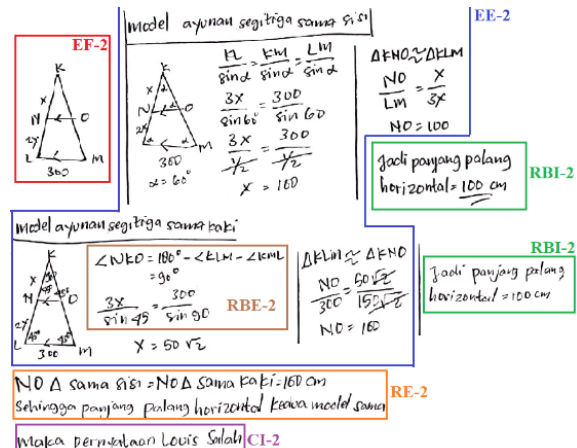 EF-2
K
x
N
O
2x
L
M
300
model ayunan segitiga sama sisi
EE-2
K
x
N
O
2x
L
M
300
α = 60°
KL/sin α = KM/sin α = LM/sin α
3x/sin 60° = 300/sin 60
3x/½ = 300/½
x = 100
ΔKNO ≅ ΔKLM
NO/LM = x/3x
NO = 100
Jadi panjang palang
horizontal = 100 cm
RBI-2
model ayunan segitiga sama kaki
K
x
90
N
45
45
O
2x
L
45
45
M
300
∠NKO = 180° - ∠KLM - ∠KML
= 90°
3x/sin 45 = 300/sin 90
RBE-2
x = 50√2
ΔKLM ≅ ΔKNO
NO/300 = 50√2/150√2
NO = 100
RBI-2
Jadi panjang palang
horizontal = 100 cm
NO Δ sama sisi = NO Δ sama kaki = 100 cm
Sehingga panjang palang horizontal kedua model sama
RE-2
Maka pernyataan Louis Salah
CI-2